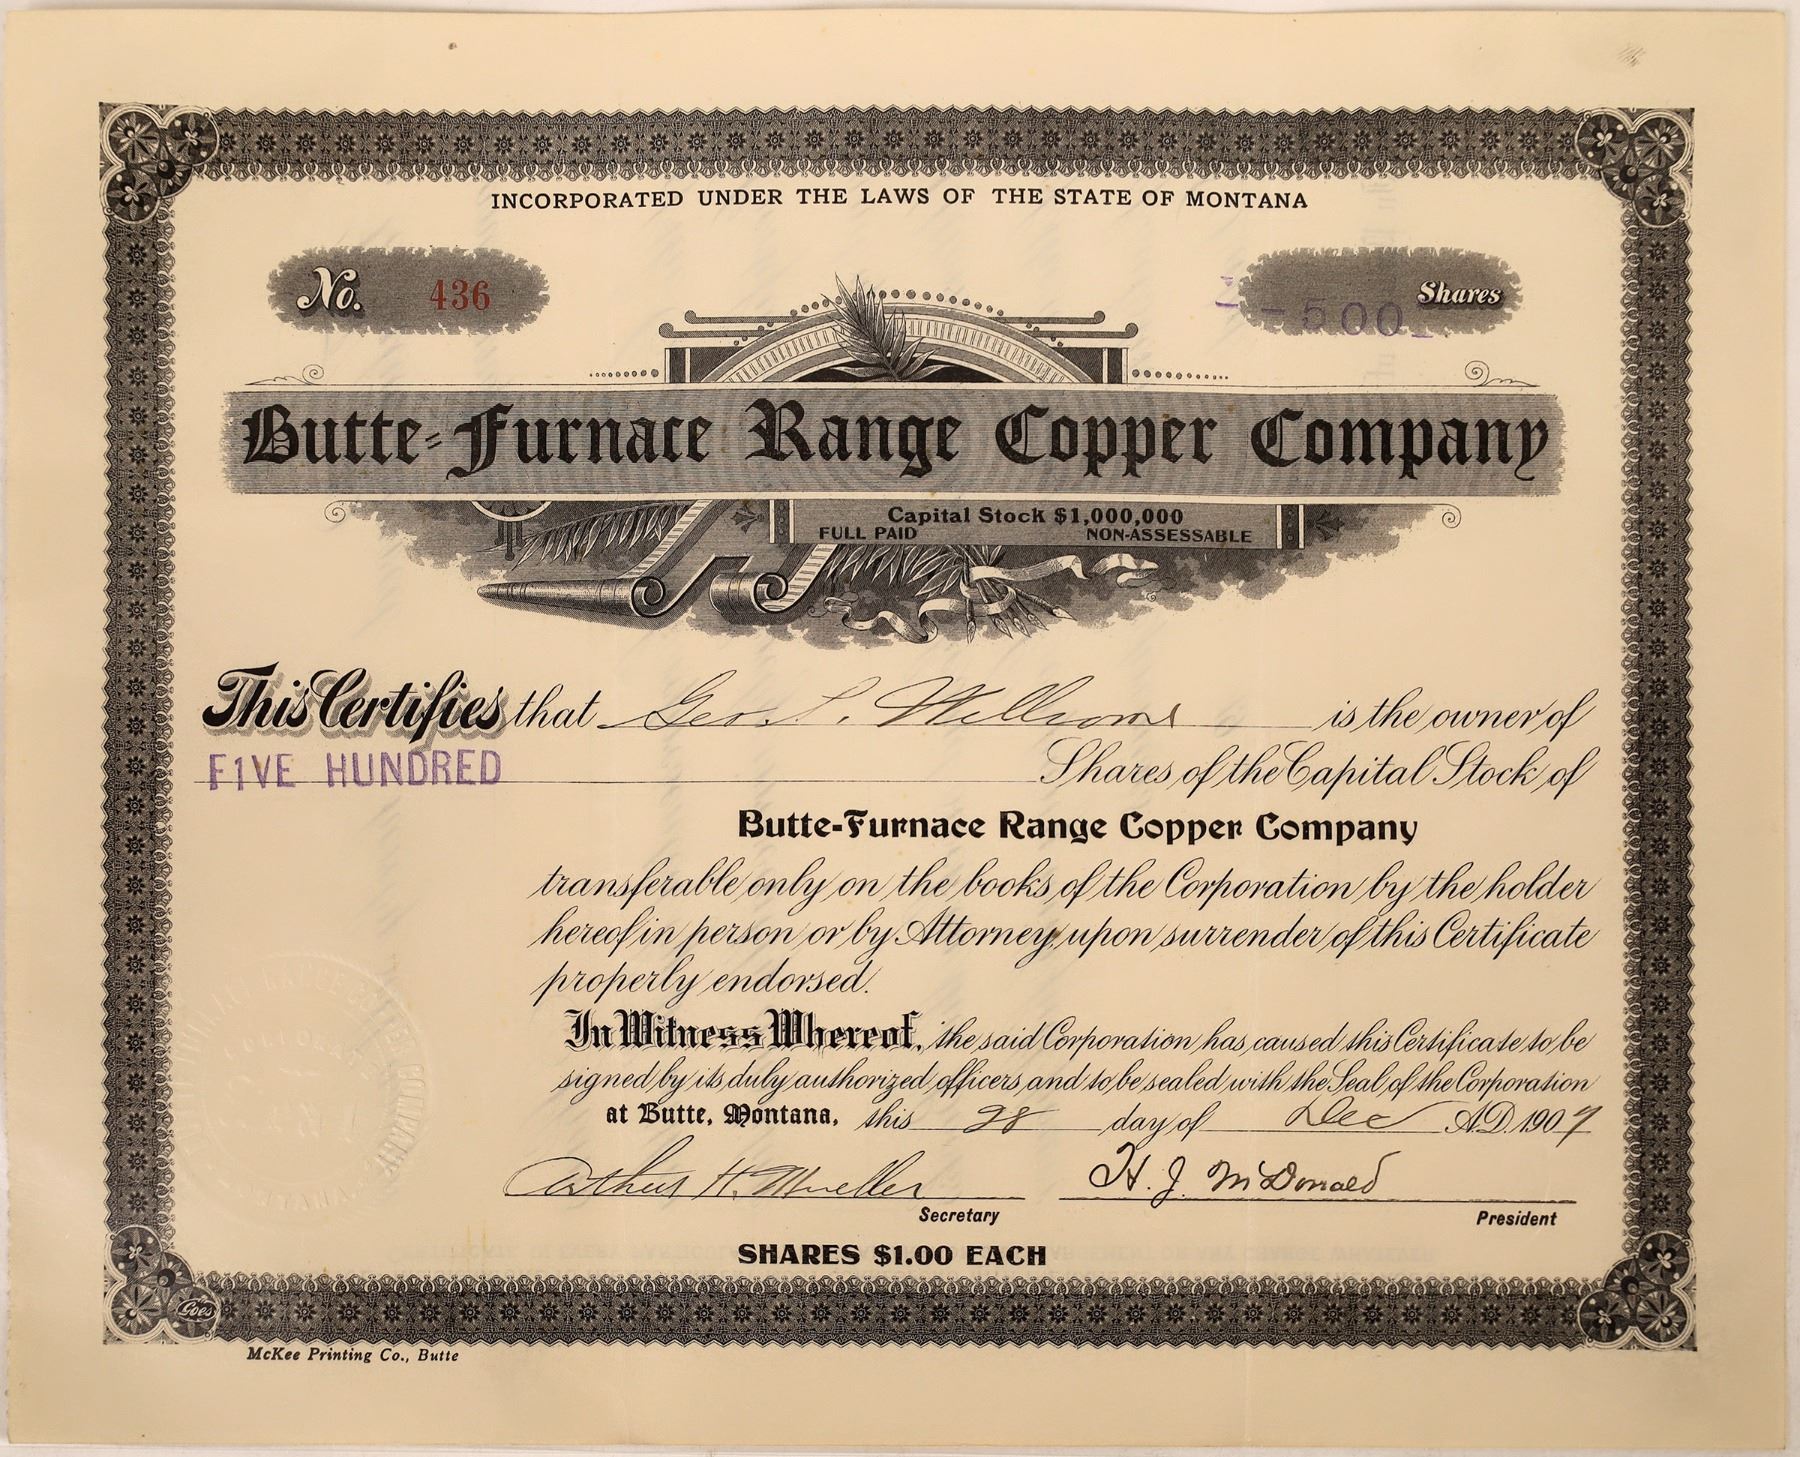 INCORPORATED UNDER THE LAWS OF THE STATE OF MONTANA
No. 436
-500- Shares
Butte-Furnace Range Copper Company
Capital Stock $1,000,000
FULL PAID NON-ASSESSABLE
This Certifies that Geo. L. Williams is the owner of
FIVE HUNDRED Shares of the Capital Stock of
Butte-Furnace Range Copper Company
transferable only on the books of the Corporation by the holder
hereof in person or by Attorney, upon surrender of this Certificate
properly endorsed.
In Witness Whereof, the said Corporation has caused this Certificate to be
signed by its duly authorized officers and to be sealed with the Seal of the Corporation
at Butte, Montana, this 28 day of Dec A.D. 1907
Arthur H. Mueller H. J. McDonald
Secretary President
SHARES $1.00 EACH
Goes
McKee Printing Co., Butte